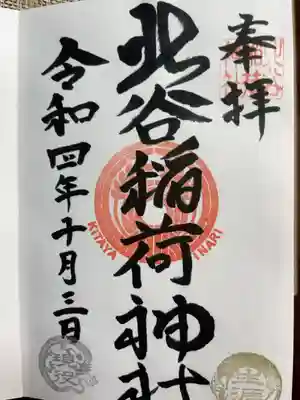 奉拝
北谷稲荷神社
KITAYA INARI
令和四年十月三日